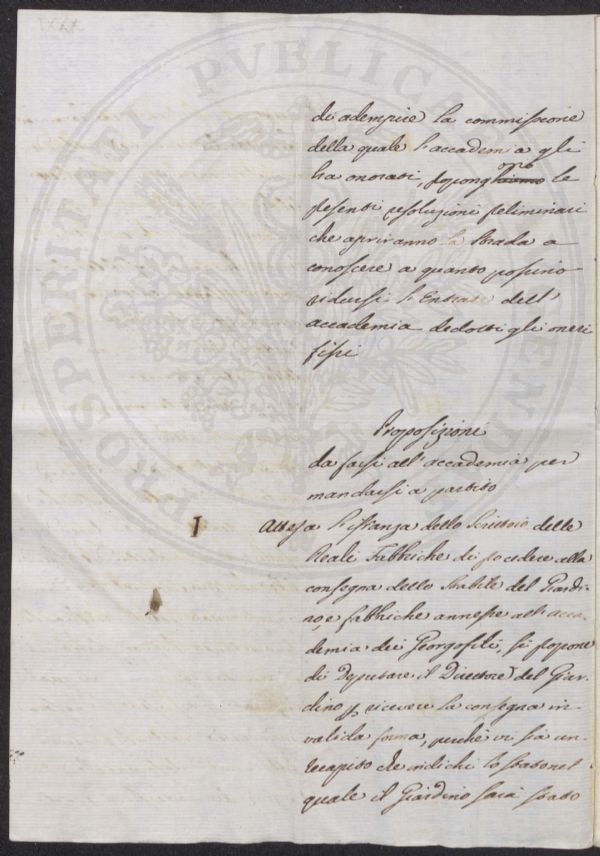 di adempire la commissione
della quale l'accademia gli
ha onorati, propongono le
presenti resoluzioni preliminari
che apriranno la strada a
conoscere a quanto possino
ridursi l'Entrate dell'
accademia dedotti gli oneri
fissi
Proposizioni
da farsi all'accademia per
mandarsi a partito
I Attesa l'istanza dello Scrittoio delle
Reali Fabbriche di procedere alla
consegna dello stabile del Giardi-
no, e fabbriche annesse all'acca-
demia dei Georgofili, si propone
di Deputare il Direttore del Giar-
dino p. ricevere la consegna in
valida forma, perchè vi sia un
recapito che indichi lo stato nel
quale il Giardino sarà stato
PROSPERITATI PVBLICAE